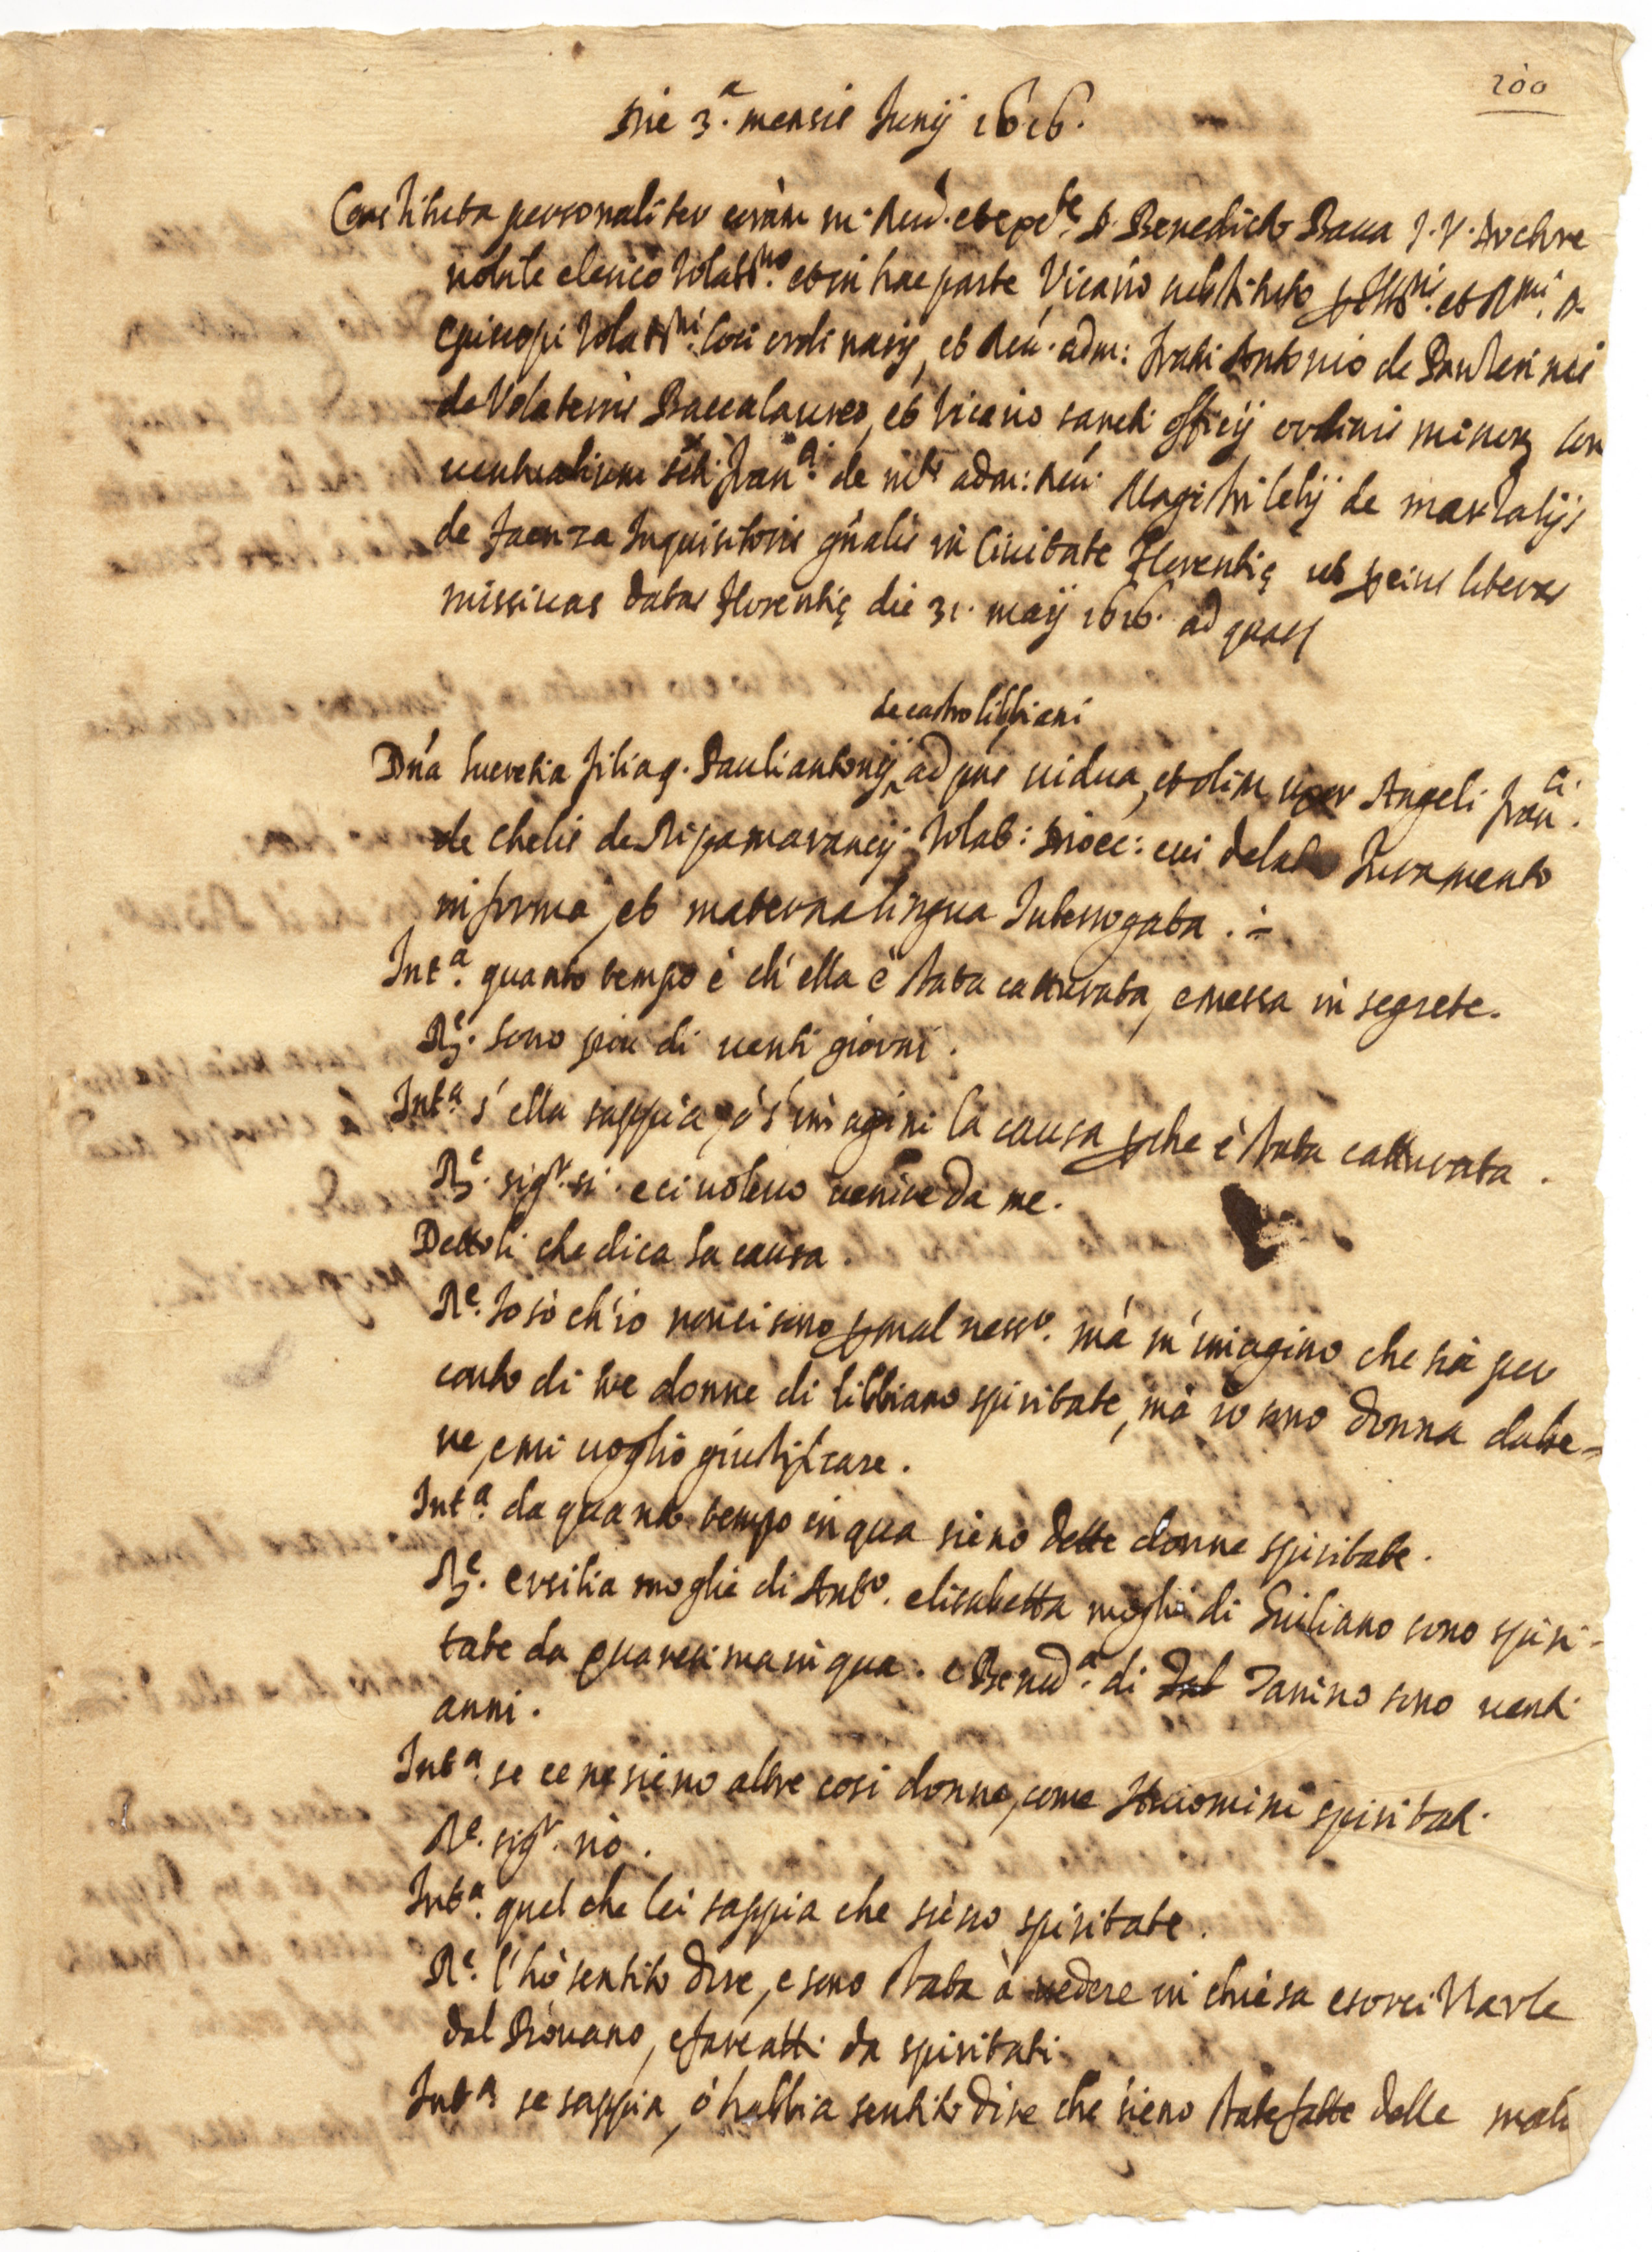 200
Die 3.a mensis Junij 1616.
Constituta personaliter coram m. Reud. et exc.te D. Benedicto Bava J. V. Doctore
nobile clerico Volatno. et in hac parte Vicario substituto Illmi. et Rmi. D.
Episcopi Volatni. loci ordinarij, et Reu. adm: fratri Antonio de
de Volaterris Baccalaureo, et Vicario sancti officij ordinis minor. con
uentualium sti. franci. de mto adm: Reu. Magistri lelij de marzalijs
de faenza Inquisitoris gnalis in Ciuitate Florentię ut p eius literas
missiuas datas Florentię die 31. maij 1616. ad quas
de castro libbiani
Dna lucretia filia q. Pauliantonij ad pns uidua, et olim uxor Angeli franci.
de chelis de Ripamarancij Volat: Dioec: cui delato Juramento
in forma, et materna lingua Interrogata. -
Inta. quanto tempo è ch'ella è stata catturata, e messa in segrete.
Re. sono piu di uenti giorni.
Inta. s'ella sappia, ò s'imagini la causa pche è stata catturata.
Re. sigr. si. e ci uoleuo uenire da me.
Dettoli che dica la causa.
Re. Io sò ch'io non ci sono p mal nesso. mà m'imagino che sia per
conto di tre donne di libbiano spiritate, mà io sono donna dabe-
ne, e mi uoglio giustificare.
Inta. da quanto tempo in qua sieno dette donne spiritate.
Re. ersilia moglie di Anto. elisabetta moglie di Giuliano sono spiri-
tate da quaresima in qua. e Bened.a di Zanino sono uenti
anni.
Inta. se ce ne sieno altre cosi donne, come huomini spiritati.
Re. sigr. nò.
Inta. quel che lei sappia che sieno spiritate.
Re. l'hò sentito dire, e sono stata à uedere in chiesa esorcizzarle
dal Piouano, e fare atti da spiritati.
Inta. se sappia, ò habbia sentito dire che sieno state fatte delle mali